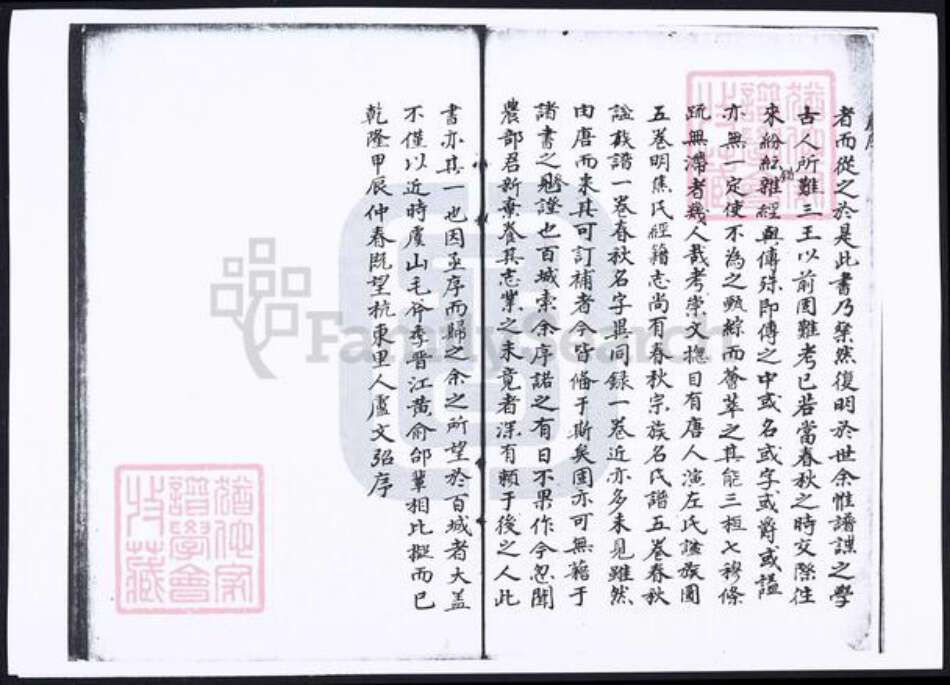 者而從之於是此書乃粲然復明於世余惟譜諜之學
古人所難三王以前固難考已若當春秋之時交際往
來紛紜雜錯經與傳殊即傳之中或名或字或爵或謚
亦無一定使不為之甄綜而薈萃之其能三桓七穆條
疏無滯者幾人哉考崇文捴目有唐人演左氏謚族圖
五卷明焦氏經籍志尚有春秋宗族名氏譜五卷春秋
謚族譜一卷春秋名字異同録一卷近亦多未見雖然
由唐而来其可訂補者今皆俻于斯矣固亦可無藉于
諸書之參證也百城索余序諾之有日不果作今忽聞
農部君新棄養其志業之未竟者深有賴于後之人此
書亦其一也因亟序而歸之余之所望於百城者大蓋
不僅以近時虞山毛斧季晋江黄俞邰輩相比擬而已
乾隆甲辰仲春既望杭東里人盧文弨序
FamilySearch